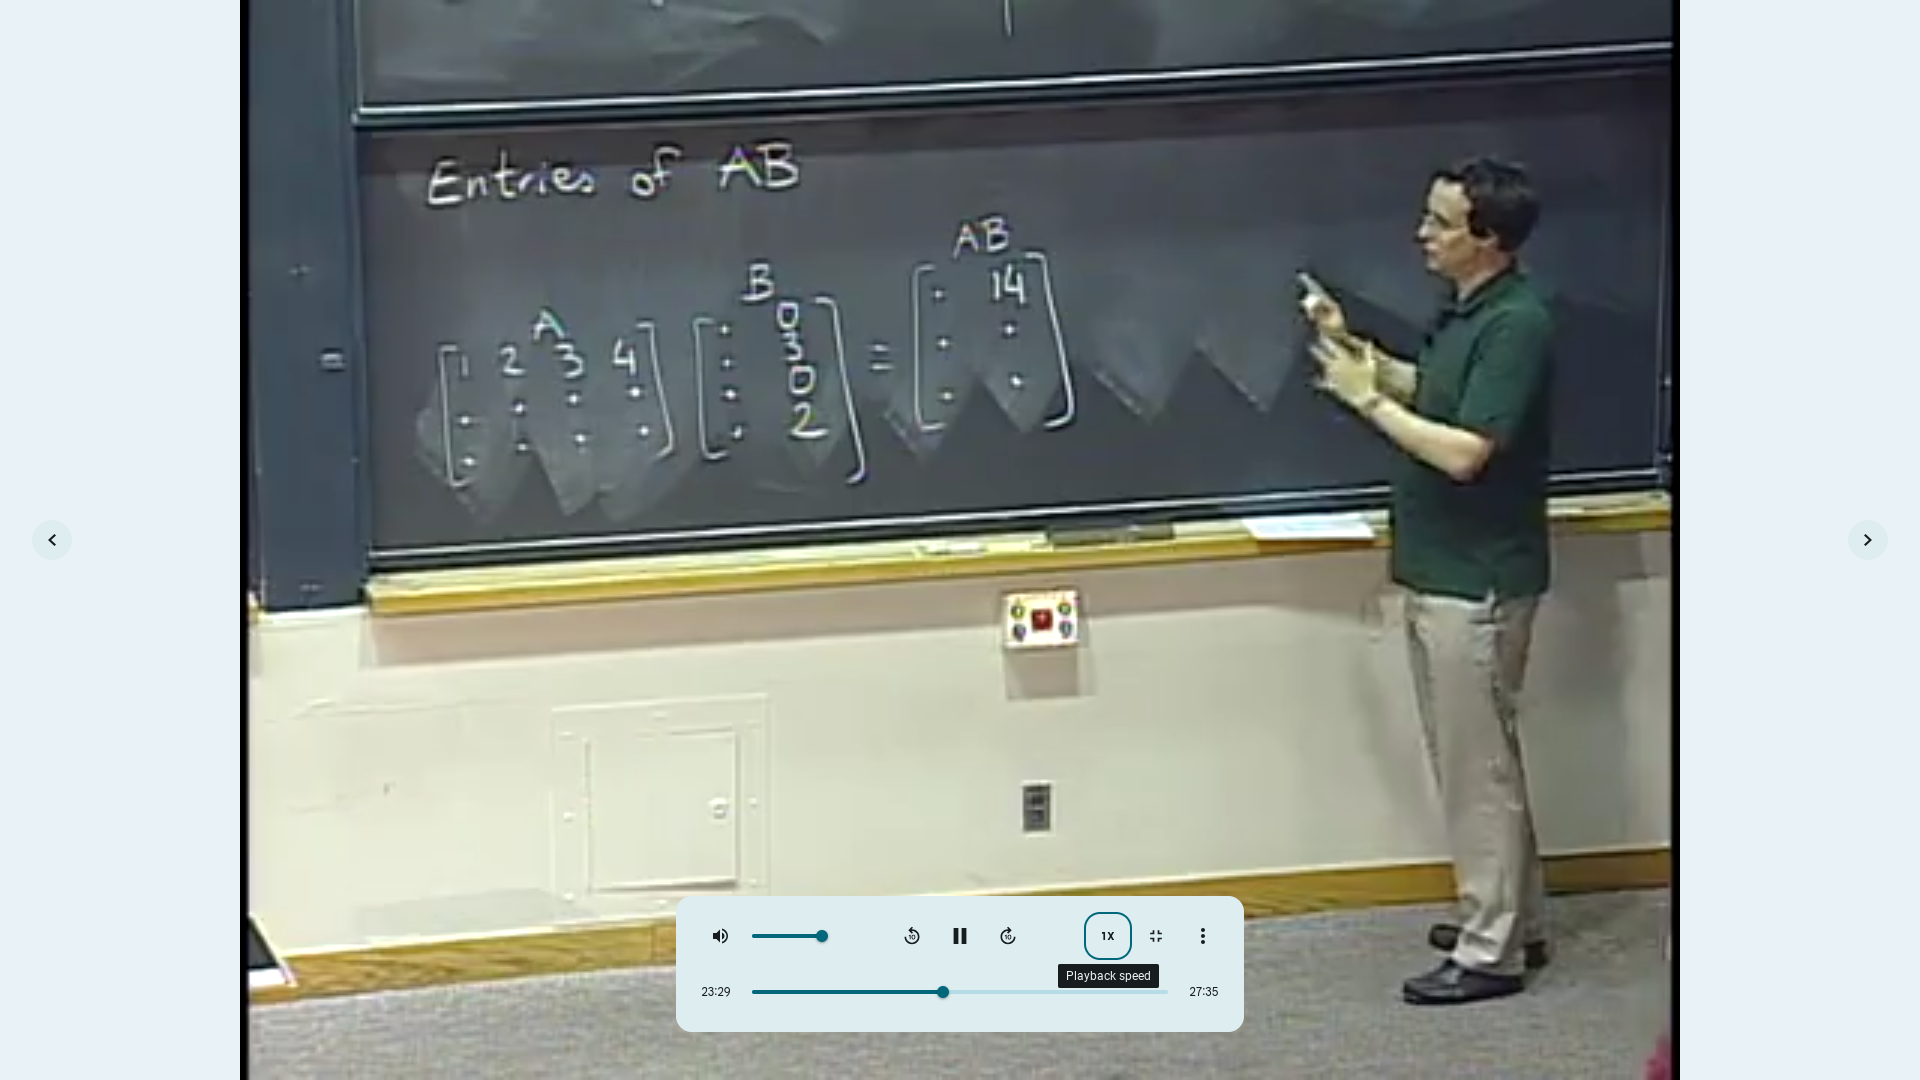 Entries of AB
AB
B
A
[1 2 3 4] [0 3 0 2] = [14]
10
10
1X
Playback speed
23:29
27:35